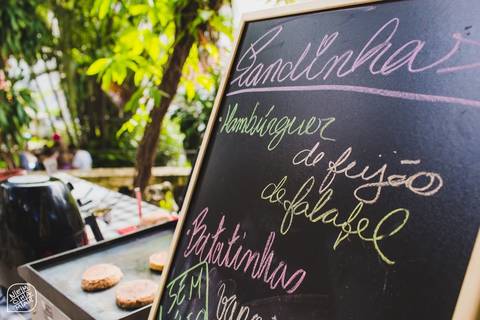 Randinhas
Hambúrguer
de feijão
de falafel
Batatinhas
SEM